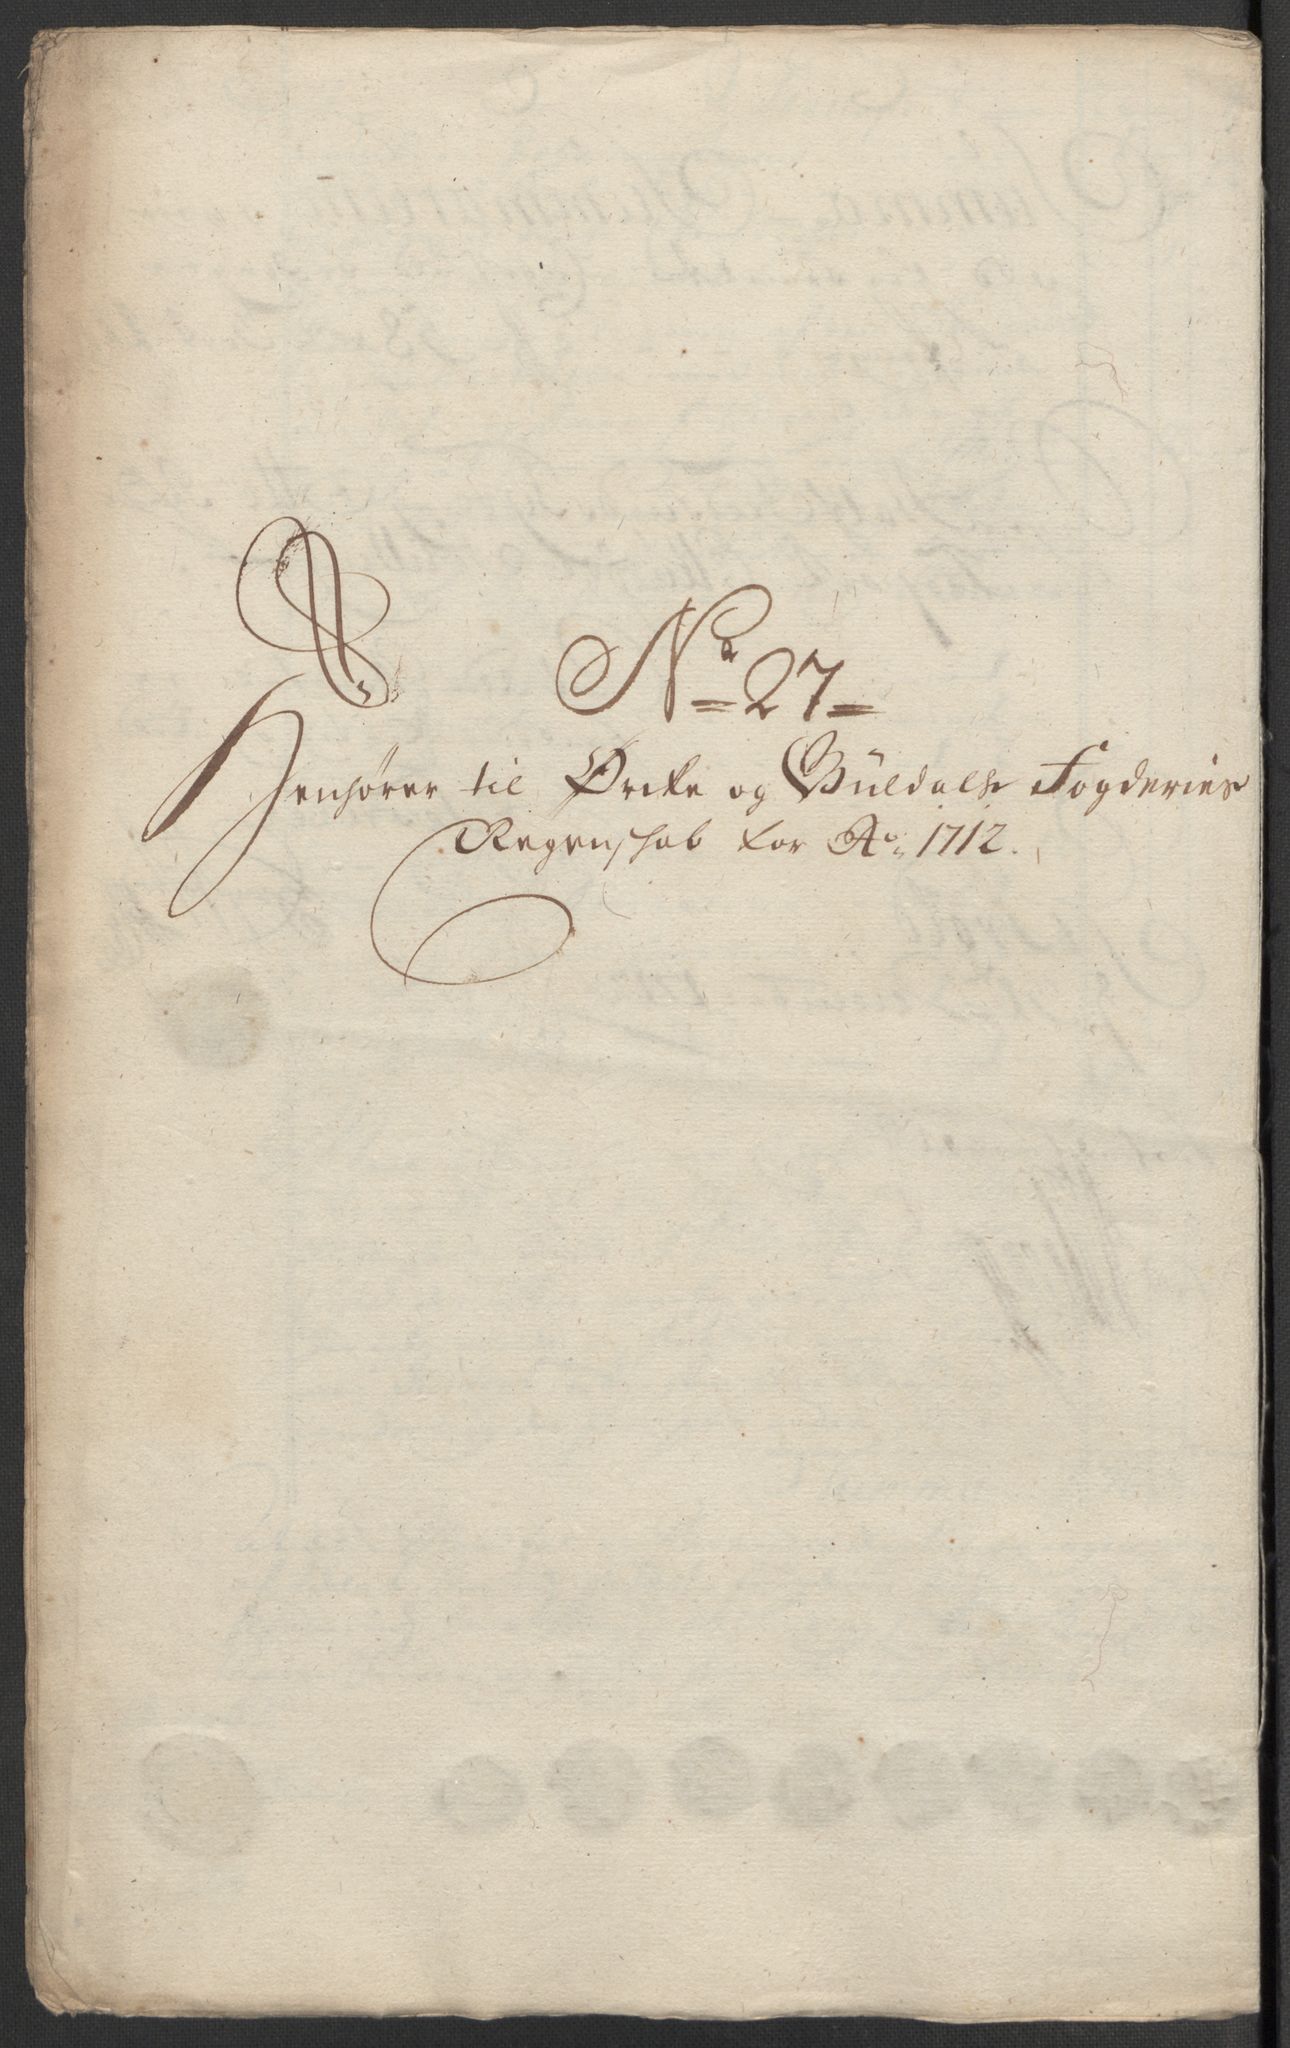 No 27
Henhører til Ørcke og Guldals Fogderies
Regenskab for Ao 1712.